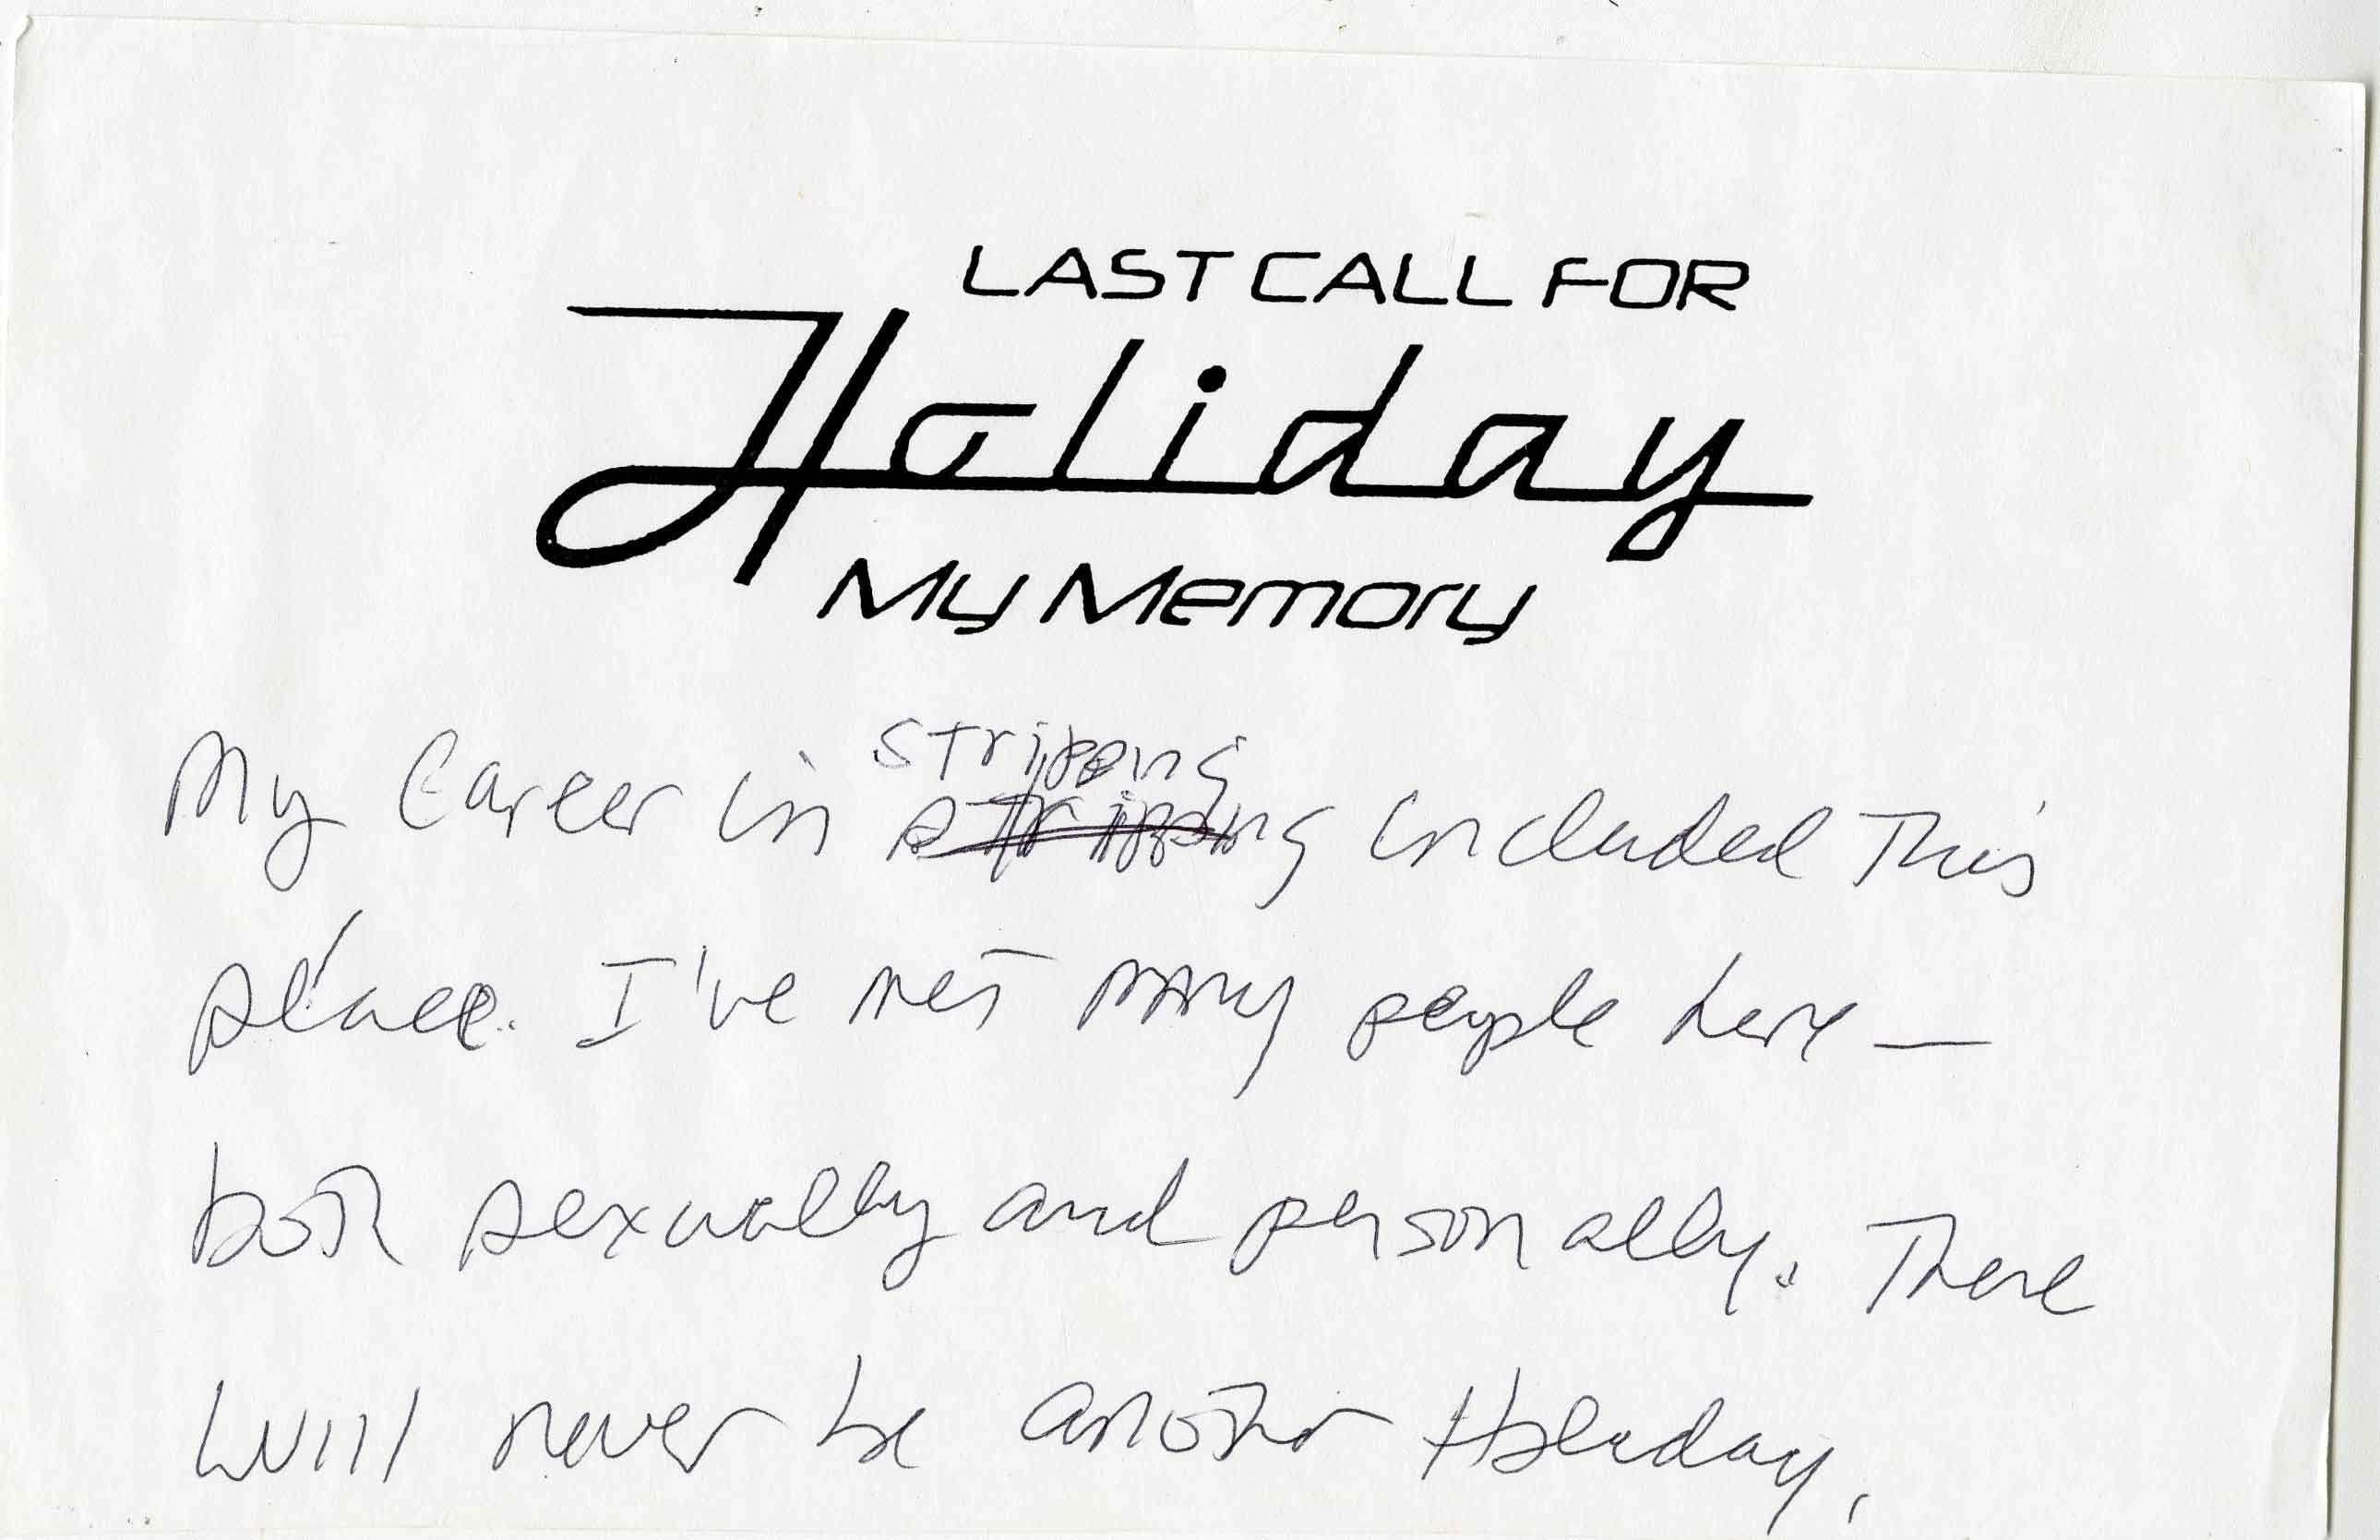 LAST CALL FOR
Holiday
My Memory
stripping
My Career in stripping included This
place. I've met many people here —
both sexually and personally. There
will never be another Holiday.